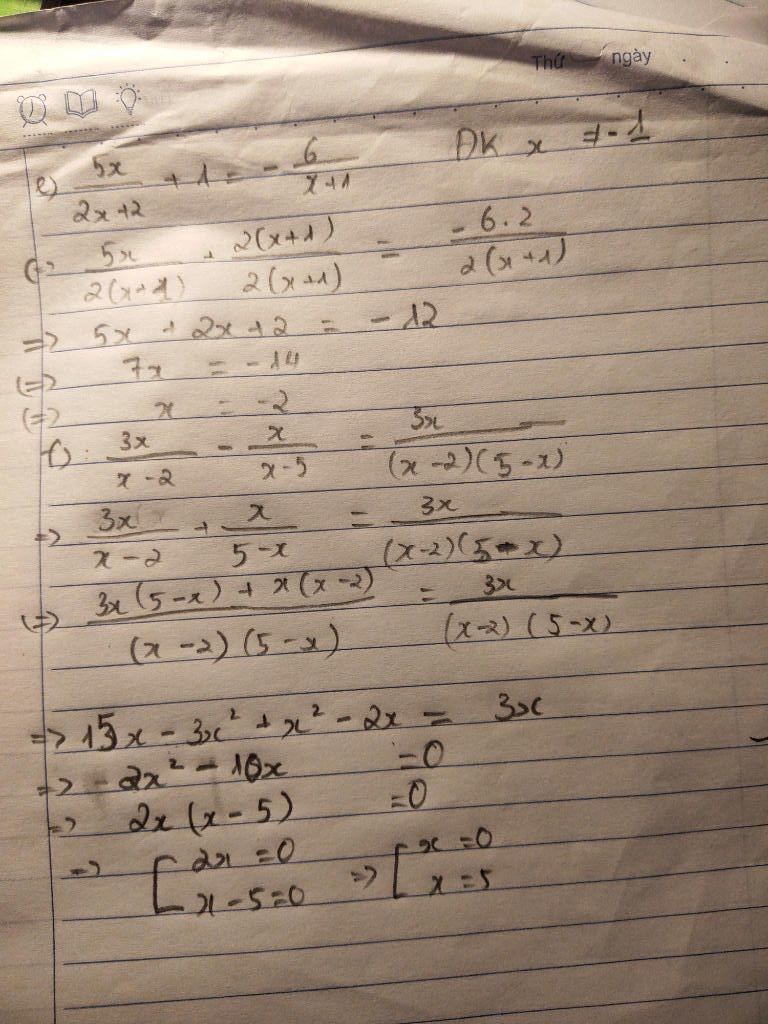 Thứ ngày
e) 5x/(2x+2) + 1 = - 6/(x+1) ĐK x ≠ -1
(=> 5x/(2(x+1)) + 2(x+1)/(2(x+1)) = -6.2/(2(x+1))
=> 5x + 2x + 2 = -12
(=> 7x = -14
(=> x = -2
f): 3x/(x-2) - x/(x-5) = 3x/((x-2)(5-x))
=> 3x/(x-2) + x/(5-x) = 3x/((x-2)(5-x))
(=> (3x(5-x) + x(x-2))/((x-2)(5-x)) = 3x/((x-2)(5-x))
=> 15x - 3x² + x² - 2x = 3x
=> -2x² - 10x = 0
=> 2x(x-5) = 0
=> [ 2x = 0 => [ x = 0
x - 5 = 0 x = 5